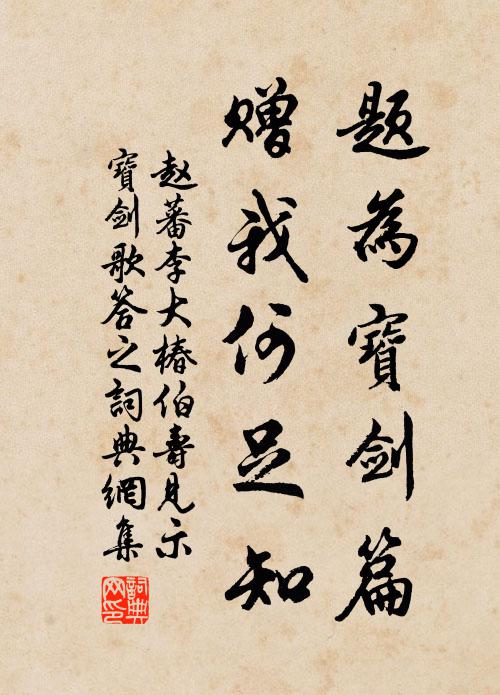 題為寶劍篇
贈我何足知
赵蕃李大椿伯壽見示
寶劍歌答之詞典網集
詞典网印